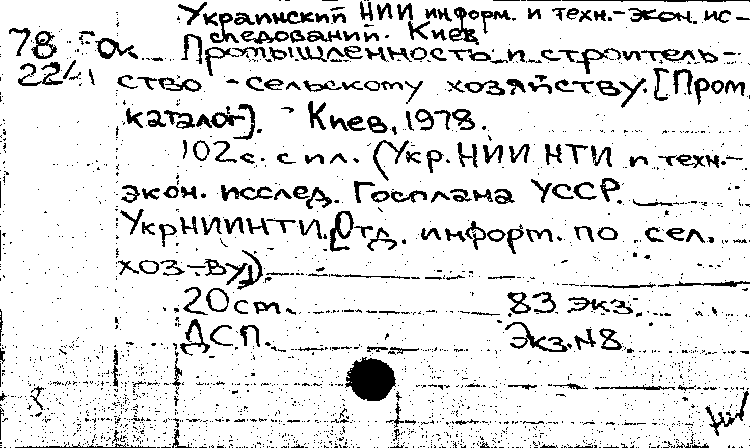 Украинский НИИ информ. и техн.-экон. ис-
следований. Киев
78-Fок Промышленность и строитель-
22/41 ство - сельскому хозяйству. [Пром.
каталог]. Киев, 1978.
102 с. с ил. (Укр. НИИ НТИ и техн.-
экон. исслед. Госплана УССР.
УкрНИИНТИ. Отд. информ. по сел.
хоз-ву).
20 ст. 83 экз.
ДСП. Экз. N8.